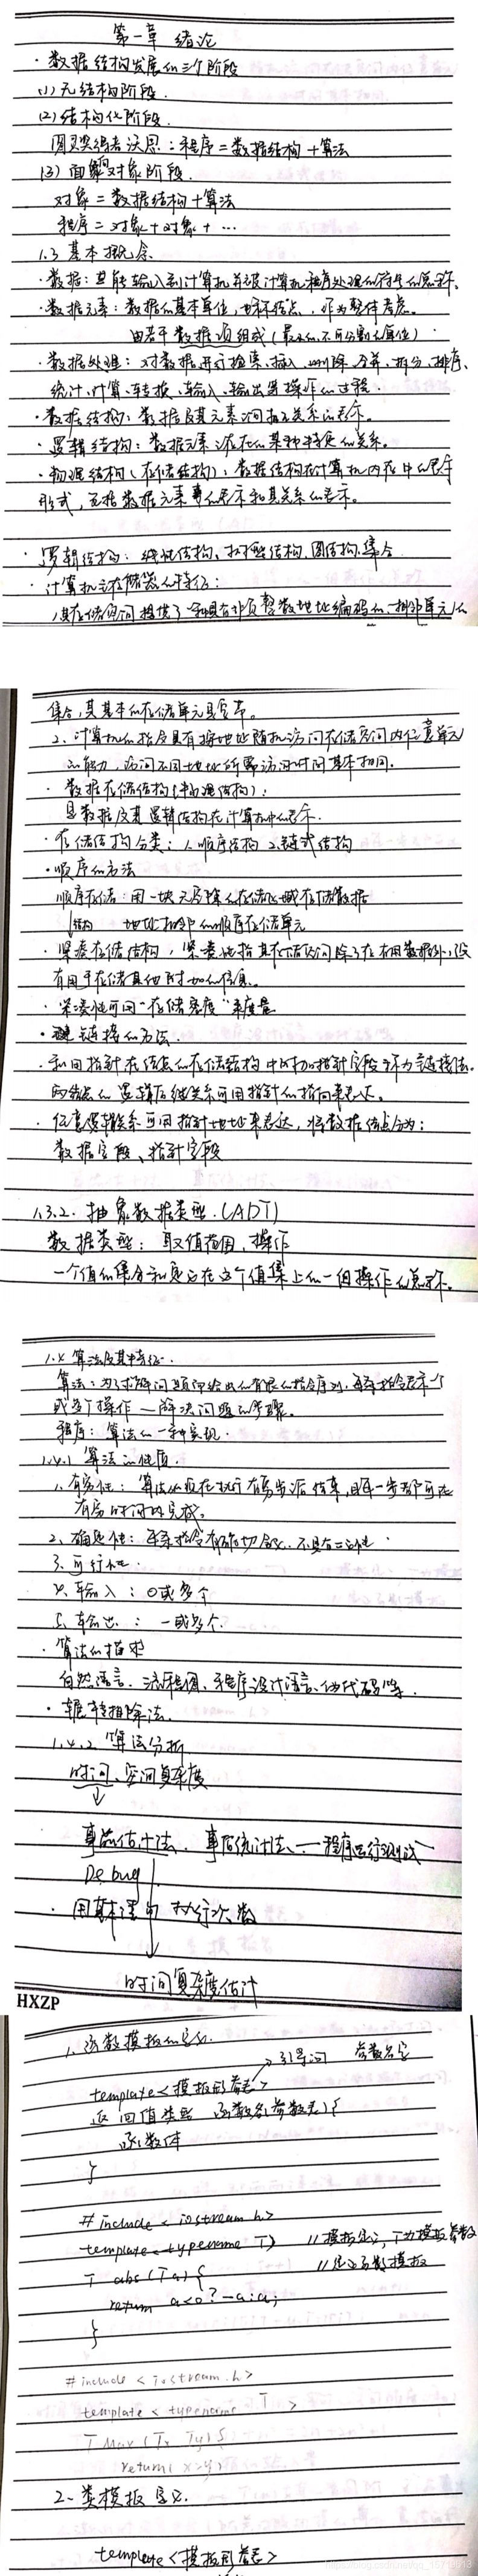 第一章 绪论
·数据结构发展的三个阶段
(1)无结构阶段.
(2)结构化阶段.
图灵奖得者沃思:程序=数据结构+算法
(3)面向对象阶段.
对象=数据结构+算法
程序=对象+对象+…
1.3 基本概念.
·数据:是能输入到计算机并被计算机程序处理的符号的总称.
·数据元素:数据的基本单位,也称结点,作为整体考虑.
由若干数据项组成(最小的,不可分割的单位)
·数据处理:对数据进行检索、插入、删除、合并、拆分、排序、
统计、计算、转换、输入、输出等操作的过程.
·数据结构:数据及其元素间相互关系的表示。
·逻辑结构:数据元素之间存在的某种特定的关系。
·物理结构(存储结构):数据结构在计算机内存中的表示
形式,包括数据元素的表示和其关系的表示。
·逻辑结构:线性结构、树型结构、图结构、集合
·计算机主存储器的特征:
1.其存储空间提供了一种具有非负整数地址编码的一相邻单元的
集合,其基本的存储单元是字节。
2.计算机的指令具有按地址随机访问存储空间内任意单元
的能力,访问不同地址所需访问时间基本相同.
·数据存储结构(物理结构):
是数据及其逻辑结构在计算机中的表示.
·存储结构分类:1.顺序结构 2.链式结构
·顺序的方法
顺序存储:用一块无空隙的存储区域存储数据
↓结构 地址相邻的顺序存储单元
·紧凑存储结构,紧凑性指其存储空间除了存有用数据外,没
有用于存储其他附加的信息.
·紧凑性可用“存储密度”来度量
·链接的方法.
·利用指针在结点的存储结构中附加指针字段称为链接法.
两结点的逻辑后继关系可用指针的指向来表达。
·任意逻辑关系可用指针地址来表达,将数据结点分为:
数据字段、指针字段
1.3.2. 抽象数据类型.(ADT)
数据类型:取值范围、操作
一个值的集合和定义在这个值集上的一组操作的总称.
1.4 算法及其特征.
算法:为求解问题而给出的有限的指令序列,每条指令表示一个
或多个操作—解决问题的步骤.
程序:算法的一种实现.
1.4.1 算法的性质.
1.有穷性:算法必须在执行有穷步后结束,且每一步都可在
有穷时间内完成.
2.确定性:每条指令有确切含义.不具有二义性.
3.可行性.
4.输入:0或多个
5.输出:一或多个.
·算法的描述
自然语言、流程图、程序设计语言、伪代码等.
·辗转相除法.
1.4.2 算法分析
时间、空间复杂度
↓
事前估计法、事后统计法、—程序运行测试
Debug
·用基本语句执行次数
时间复杂度估计
HXZP
1.函数模板的定义.
→引导词 参数名字
template<模板形参表>
返回值类型 函数名(参数表){
函数体
}
#include<iostream.h>
template<typename T> //模板定义,T为模板参数
T abs(T a){ //定义函数模板
return a<0?-a:a;
}
#include<iostream.h>
template<typename T>
T Max(T x, T y){
return(x>y)
2、类模板定义.
template<模板形参表>